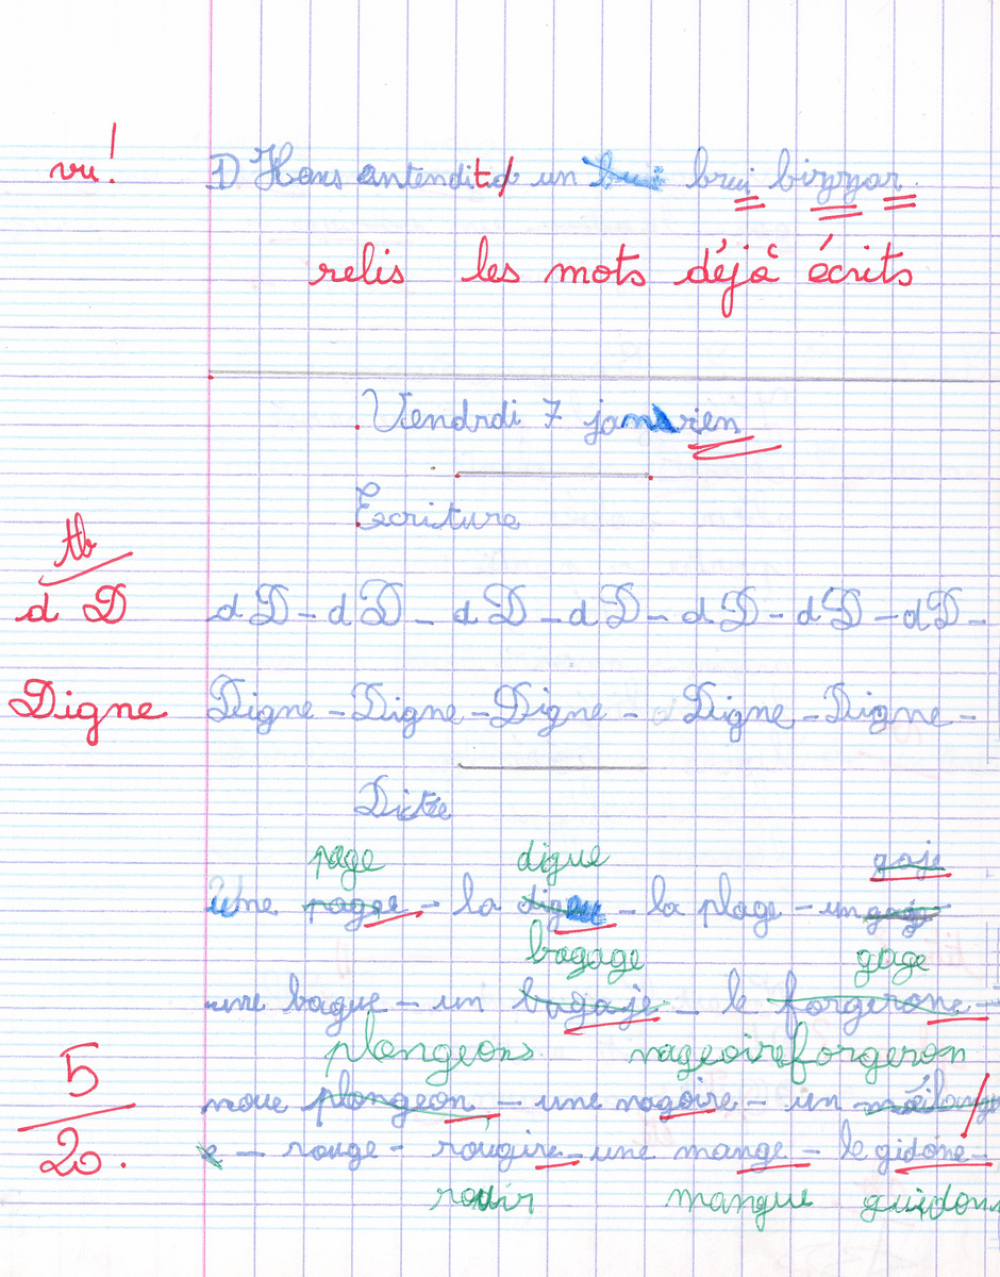 vu! 1) Hans antendit un brui bizzar.
relis les mots déjà écrits
Vendrdi 7 janvrien
Ecriture
tb
d D d D - d D - d D - d D - d D - d D - d D -
Digne Digne - Digne - Digne - Digne - Digne -
Dictée
page digue gaje
Une page - la digue - la plage - un
bagage gage
une bague - un bagaje - le forgerone -
plongeons nageoire forgeron
5 noue plongeon - une nagoire - un
20. e - rouge - rougire - une mange - le gidone -
rouir mangue guidon